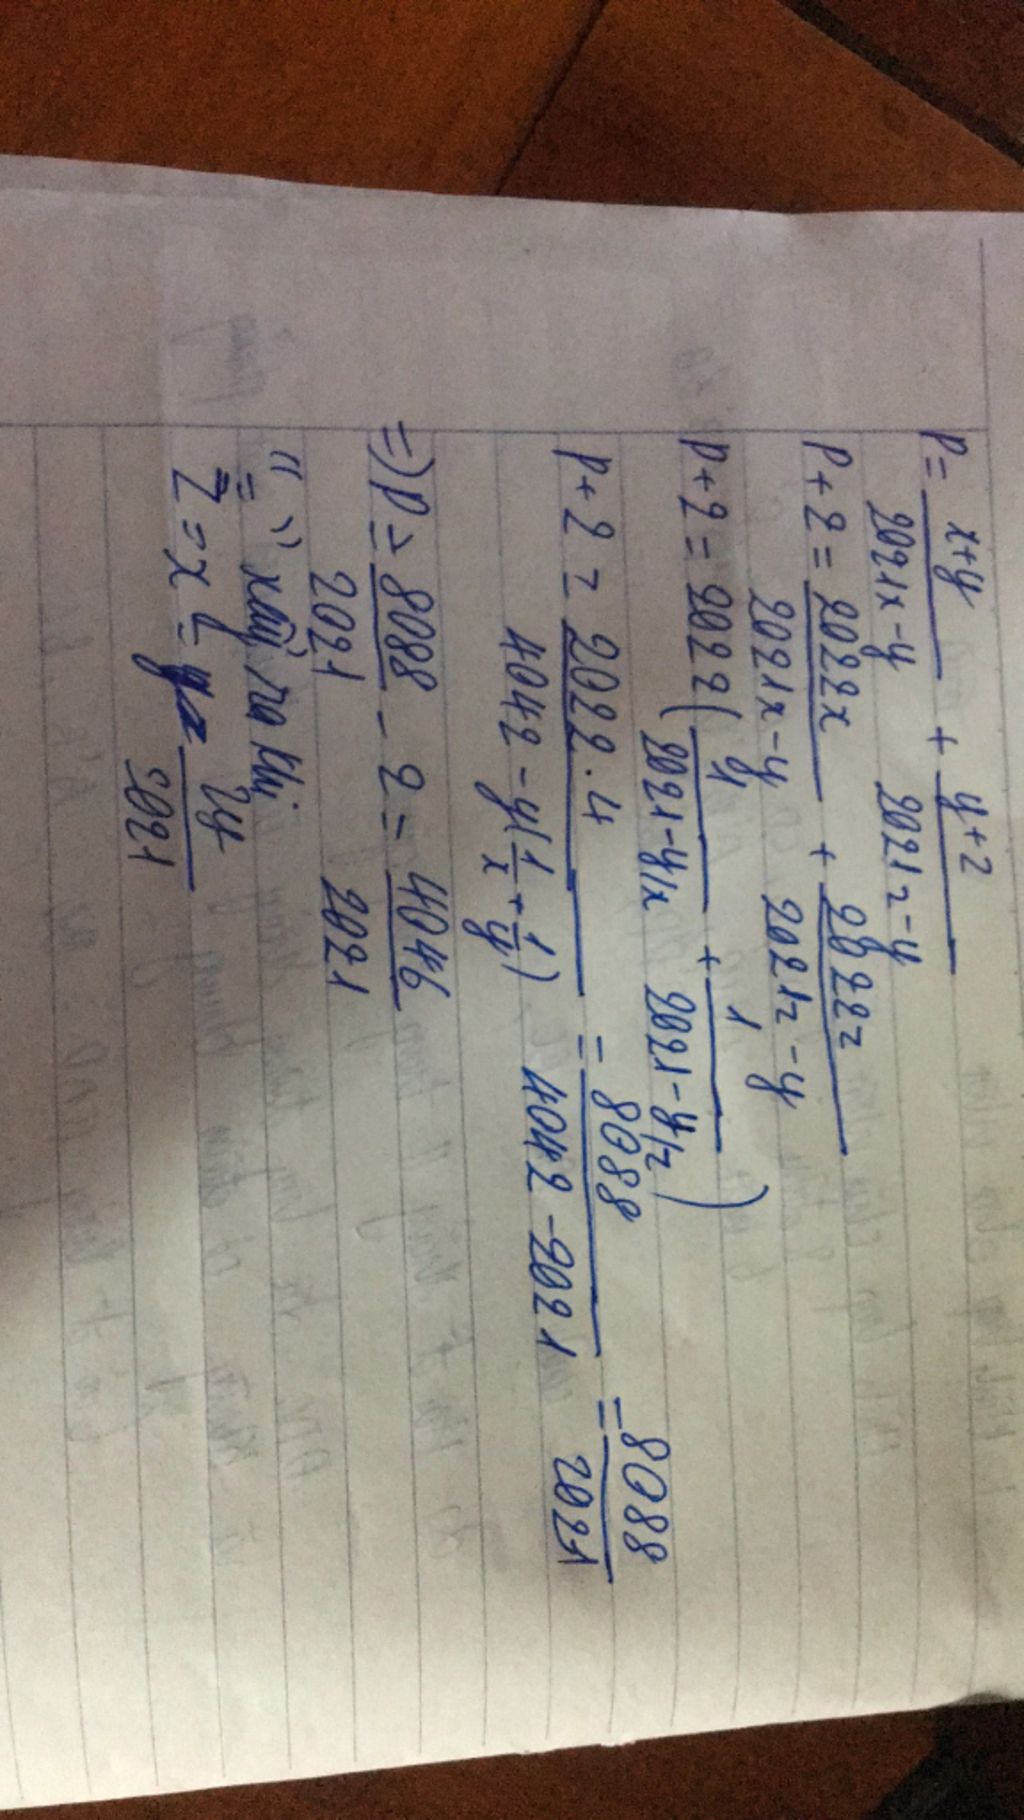 P = \frac{x+y}{2021x-y} + \frac{y+z}{2021z-y}
P+2 = \frac{2022x}{2021x-y} + \frac{2022z}{2021z-y}
P+2 = 2022(\frac{1}{2021-y/x} + \frac{1}{2021-y/z})
P+2 ≥ \frac{2022.4}{4042-y(\frac{1}{x}+\frac{1}{y})} = \frac{8088}{4042-2021} = \frac{8088}{2021}
=) P => \frac{8088}{2021} - 2 = \frac{4046}{2021}
"=" xảy ra khi
z = x = \frac{2y}{2021}